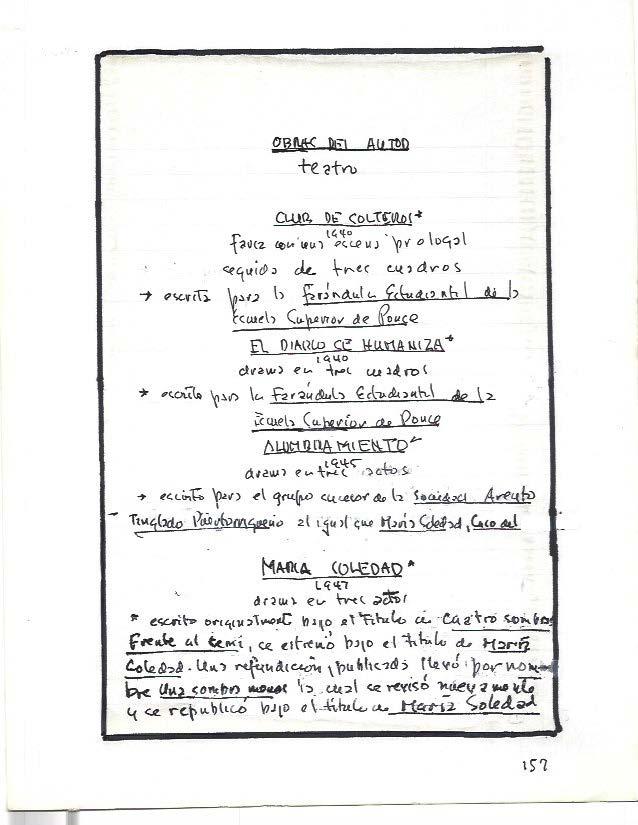 OBRAS DEL AUTOR
teatro
CLUB DE SOLTEROS*
1940
farsa con una escena prologal
seguida de tres cuadros
* escrita para la Farándula Estudiantil de la
Escuela Superior de Ponce
EL DIABLO SE HUMANIZA*
1940
drama en tres cuadros
* escrito para la Farándula Estudiantil de la
Escuela Superior de Ponce
ALUMBRAMIENTO*
1945
drama en tres actos
* escrito para el grupo sucesor de la Sociedad Areyto
Tinglado Puertorriqueño al igual que María Soledad,
MARIA SOLEDAD*
1947
drama en tres actos
* escrito originalmente bajo el título de Cuatro sombras
frente al cemí, se estrenó bajo el título de María
Soledad. Una refundición, publicada llevó por nom-
bre Una sombra menos la cual se revisó nuevamente
y se republicó bajo el título de María Soledad
157